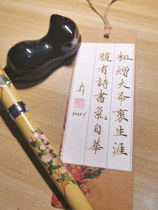 粗繒大布裹生涯
腹有詩書氣自華